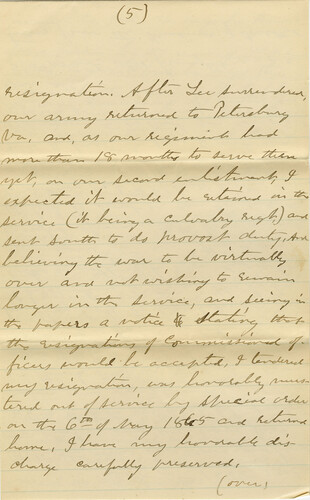 (5)
resignation. After Lee surrendered,
our army returned to Petersburg
Va, and, as our regiment had
more than 18 months to serve then
yet, on our second enlistment, I
expected it would be retained in the
service (it being a calvalry regt) and
sent South to do provost duty, and
believing the war to be virtually
over and not wishing to remain
longer in the service, and seeing in
the papers a notice stating that
the resignations of Commissioned of-
ficers would be accepted, I tendered
my resignation, was honorably mus-
tered out of service by special order
on the 6th of May 1865 and returned
home, I have my honorable dis-
charge carefully preserved.
(over)